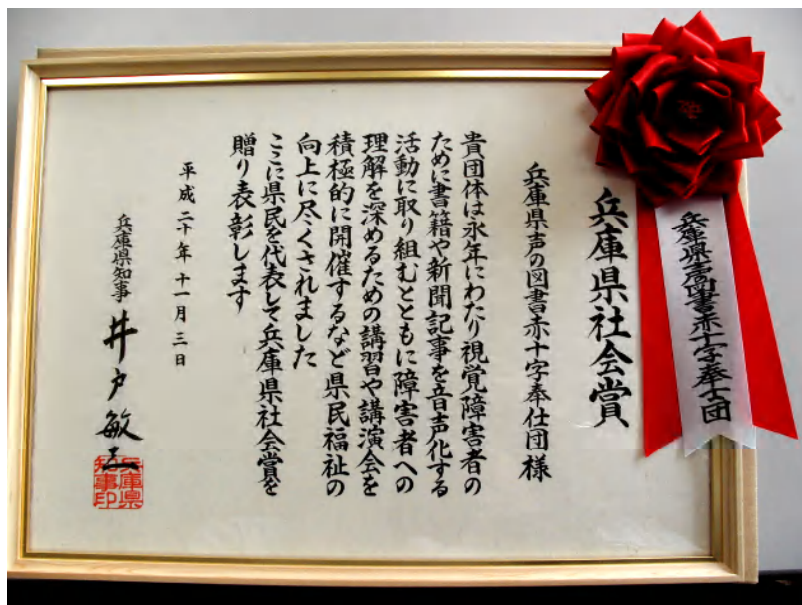 兵庫県社会賞
兵庫県声の図書赤十字奉仕団様
貴団体は永年にわたり視覚障害者の
ために書籍や新聞記事を音声化する
活動に取り組むとともに障害者への
理解を深めるための講習や講演会を
積極的に開催するなど県民福祉の
向上に尽くされました
ここに県民を代表して兵庫県社会賞を
贈り表彰します
平成二十年十一月三日
兵庫県知事 井戸敏三
兵庫県
知事印
兵庫県声の図書赤十字奉仕団